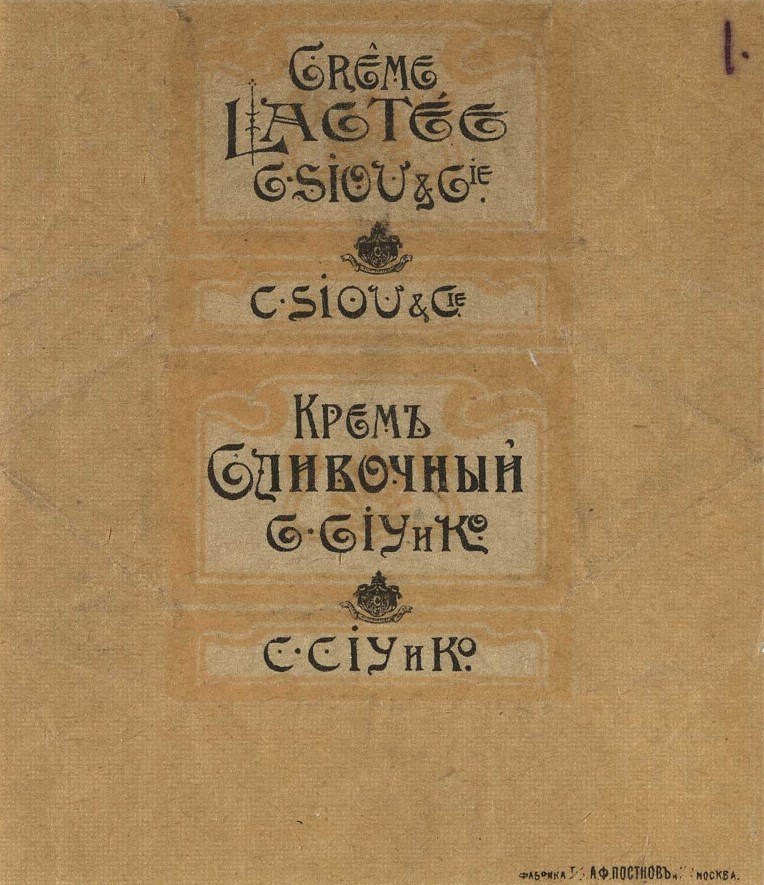 Crême
Lactée
C·Siou & Cie.
C·Siou & Cie.
Кремъ
Сливочный
С·Сіу и Ко.
С·Сіу и Ко.
ФАБРИКА А.Ф. ПОСТНОВЪ МОСКВА.
1.